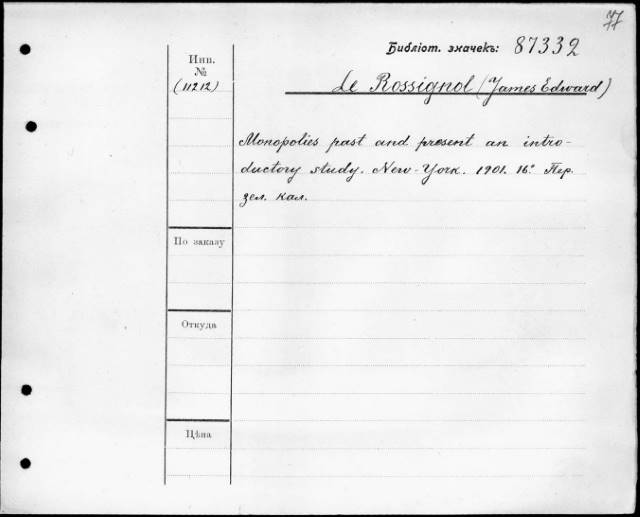 77
Библіот. значекъ: 87332
Инв.
№
(11212)
Le Rossignol (James Edward)
Monopolies past and present an intro-
ductory study. New-York. 1901. 16° Пер.
зел. кал.
По заказу
Откуда
Цѣна